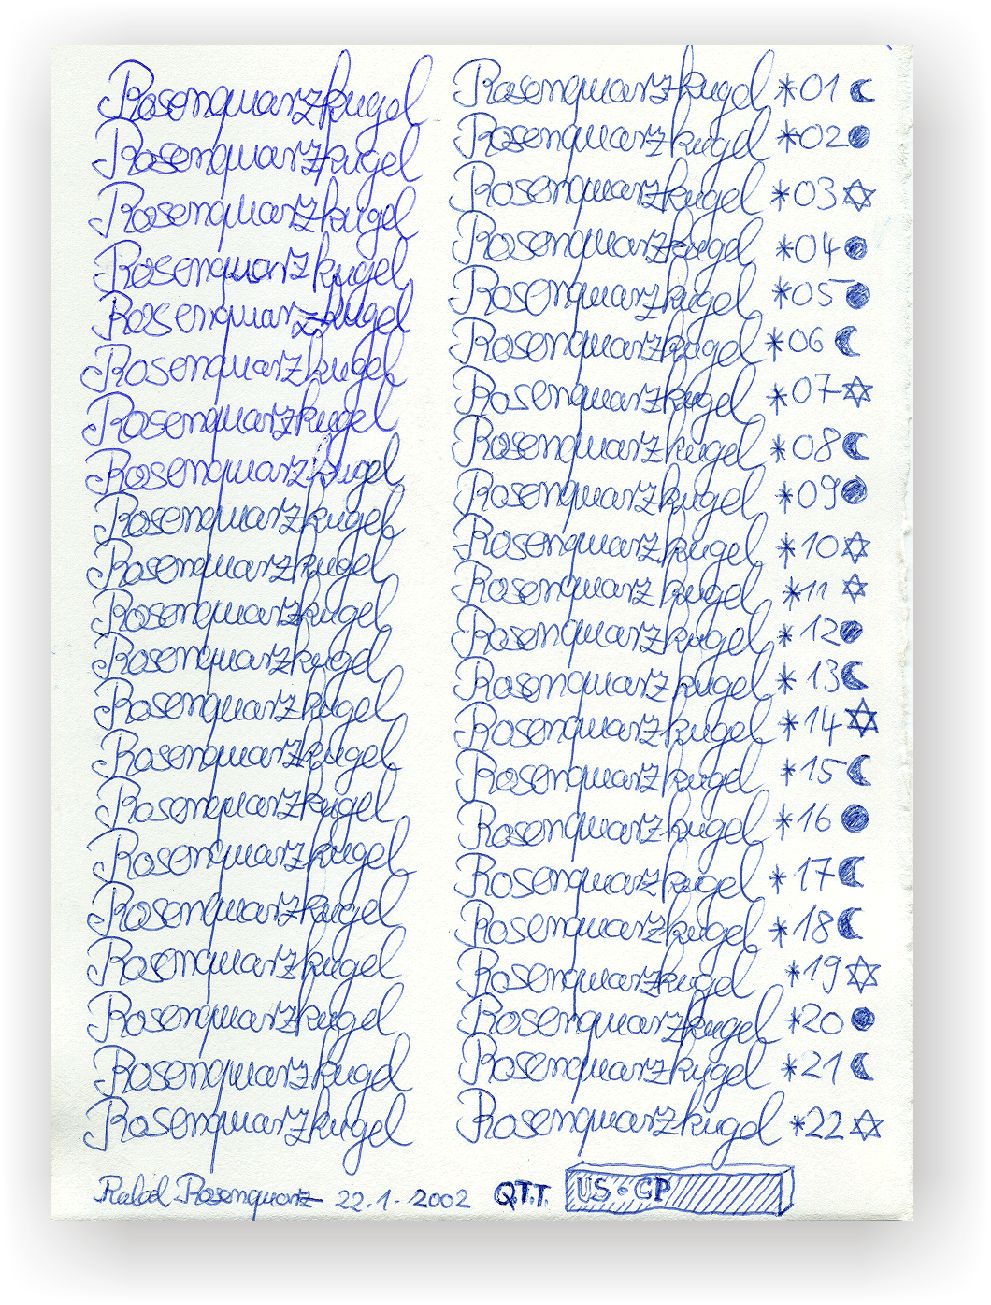 Rosenquarzkugel
Rosenquarzkugel
Rosenquarzkugel
Rosenquarzkugel
Rosenquarzkugel
Rosenquarzkugel
Rosenquarzkugel
Rosenquarzkugel
Rosenquarzkugel
Rosenquarzkugel
Rosenquarzkugel
Rosenquarzkugel
Rosenquarzkugel
Rosenquarzkugel
Rosenquarzkugel
Rosenquarzkugel
Rosenquarzkugel
Rosenquarzkugel
Rosenquarzkugel
Rosenquarzkugel
Rosenquarzkugel
Rosenquarzkugel *01
Rosenquarzkugel *02
Rosenquarzkugel *03
Rosenquarzkugel *04
Rosenquarzkugel *05
Rosenquarzkugel *06
Rosenquarzkugel *07
Rosenquarzkugel *08
Rosenquarzkugel *09
Rosenquarzkugel *10
Rosenquarzkugel *11
Rosenquarzkugel *12
Rosenquarzkugel *13
Rosenquarzkugel *14
Rosenquarzkugel *15
Rosenquarzkugel *16
Rosenquarzkugel *17
Rosenquarzkugel *18
Rosenquarzkugel *19
Rosenquarzkugel *20
Rosenquarzkugel *21
Rosenquarzkugel *22
Rosenquarz 22.1.2002 Q.T.T. US-CP